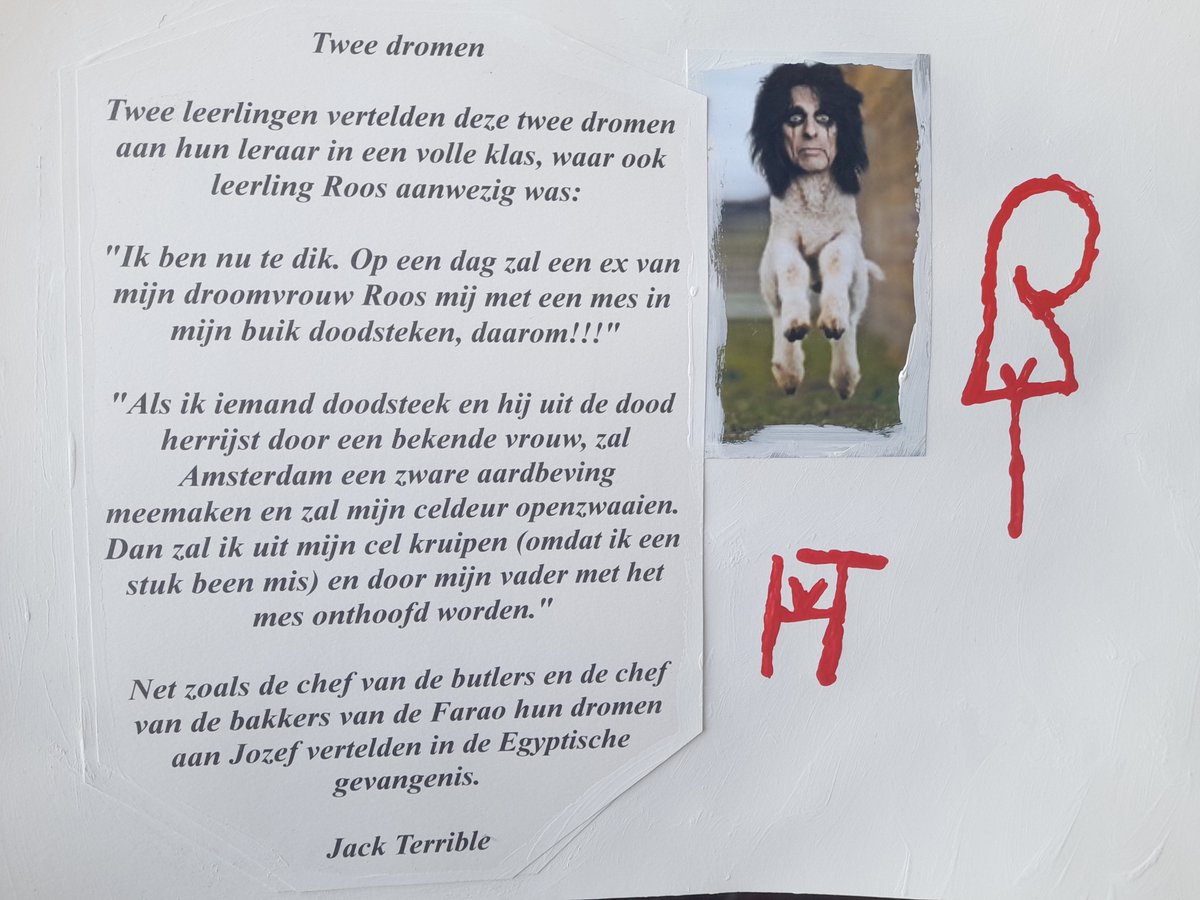 Twee dromen
Twee leerlingen vertelden deze twee dromen
aan hun leraar in een volle klas, waar ook
leerling Roos aanwezig was:
"Ik ben nu te dik. Op een dag zal een ex van
mijn droomvrouw Roos mij met een mes in
mijn buik doodsteken, daarom!!!"
"Als ik iemand doodsteek en hij uit de dood
herrijst door een bekende vrouw, zal
Amsterdam een zware aardbeving
meemaken en zal mijn celdeur openzwaaien.
Dan zal ik uit mijn cel kruipen (omdat ik een
stuk been mis) en door mijn vader met het
mes onthoofd worden."
Net zoals de chef van de butlers en de chef
van de bakkers van de Farao hun dromen
aan Jozef vertelden in de Egyptische
gevangenis.
Jack Terrible